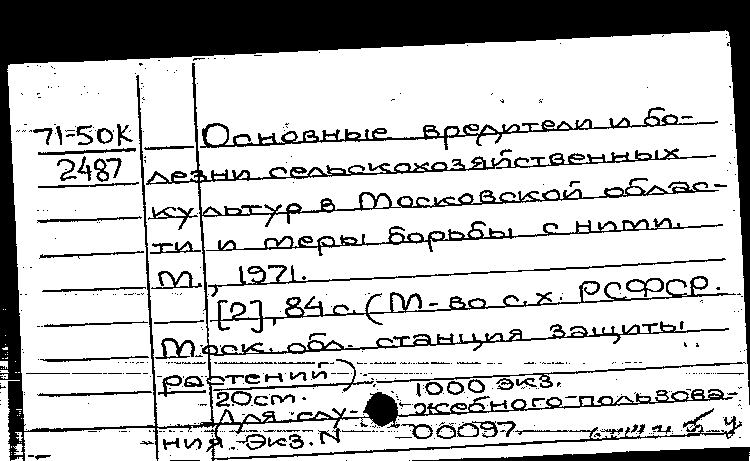 71-50К
2487
Основные вредители и бо-
лезни сельскохозяйственных
культур в Московской облас-
ти и меры борьбы с ними.
М., 1971.
[2], 84 с. (М-во с.х. РСФСР.
Моск. обл. станция защиты
растений)
20см. 1000 экз.
(Для слу-жебного пользова-
ния. Экз. N 00097